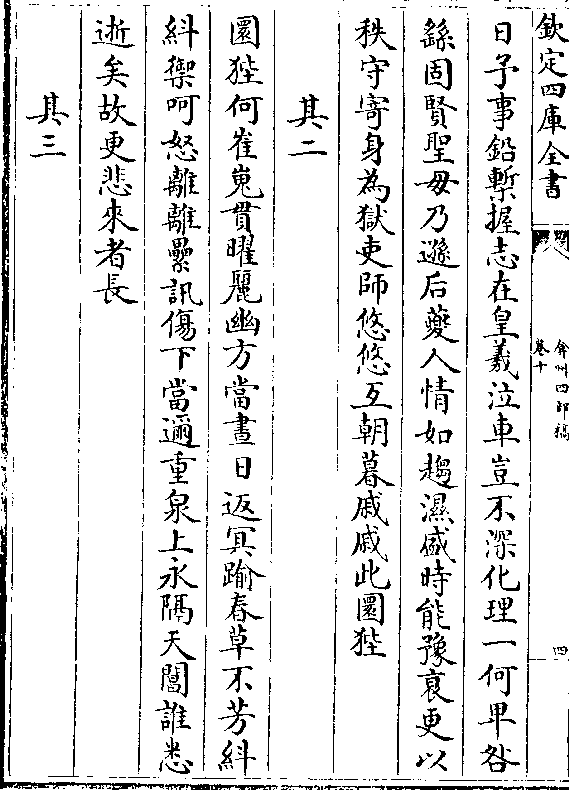 欽定四庫全書
弇州四部稿
卷十
四
日予事鉛槧握志在皇羲泣車豈不深化理一何卑咎
繇固賢聖毋乃遜后夔人情如趨濕盛時能豫哀更以
秩守寄身為獄吏師悠悠互朝暮戚戚此圜狴
其二
圜狴何崔嵬貫曜麗幽方當晝日返冥踰春草不芳糾
糾禦呵怒離離纍訊傷下當邇重泉上永隔天閶誰悉
逝矣故更悲來者長
其三